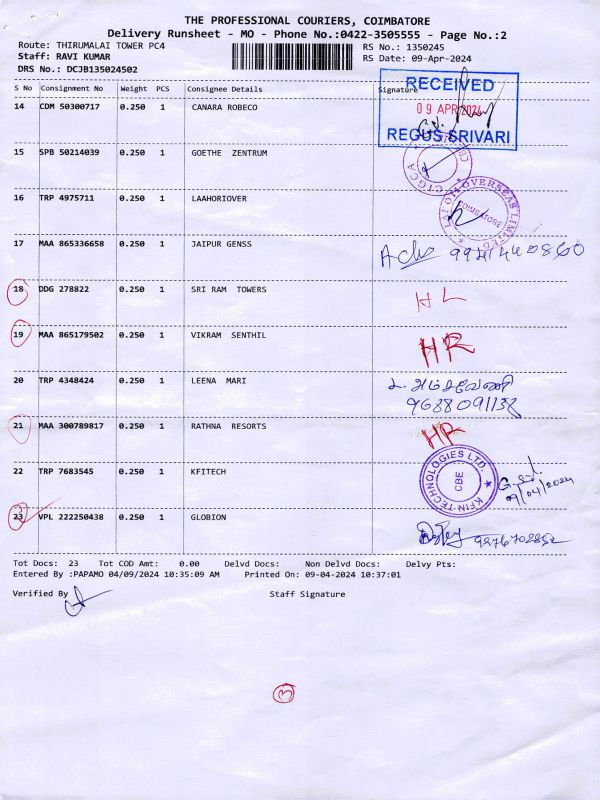 THE PROFESSIONAL COURIERS, COIMBATORE
Delivery Runsheet - MO - Phone No.:0422-3505555 - Page No.:2
Route: THIRUMALAI TOWER PC4
RS No.: 1350245
Staff: RAVI KUMAR
RS Date: 09-Apr-2024
DRS No.: DCJB135024502
S No Consignment No Weight PCS Consignee Details Signature
RECEIVED
09 APR 2024
REGUS SRIVARI
14 CDM 50300717 0.250 1 CANARA ROBECO
15 SPB 50214039 0.250 1 GOETHE ZENTRUM
16 TRP 4975711 0.250 1 LAAHORIOVER
OVERSEAS LIMITED
COIMBATORE
17 MAA 865336658 0.250 1 JAIPUR GENSS
18 DDG 278822 0.250 1 SRI RAM TOWERS HL
19 MAA 865179502 0.250 1 VIKRAM SENTHIL HR
20 TRP 4348424 0.250 1 LEENA MARI
9688091138
21 MAA 300789817 0.250 1 RATHNA RESORTS HR
22 TRP 7683545 0.250 1 KFITECH
KFIN TECHNOLOGIES LTD.
CBE
09/04/2024
23 VPL 222250438 0.250 1 GLOBION
9976702852
Tot Docs: 23 Tot COD Amt: 0.00 Delvd Docs: Non Delvd Docs: Delvy Pts:
Entered By :PAPAMO 04/09/2024 10:35:09 AM Printed On: 09-04-2024 10:37:01
Verified By Staff Signature
3